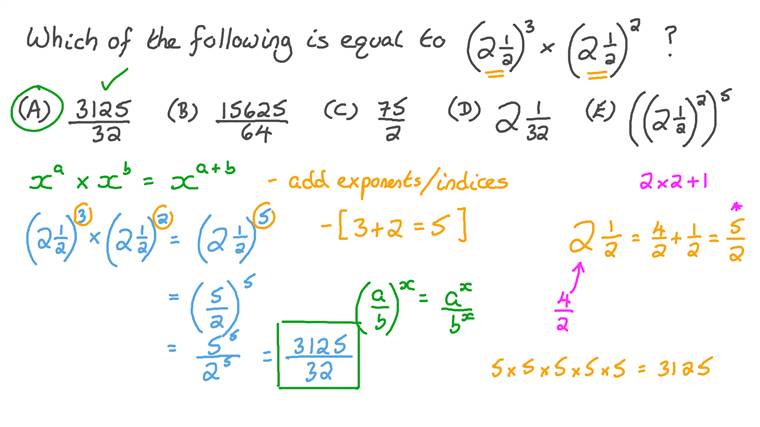 Which of the following is equal to (2 1/2)³ × (2 1/2)² ?
(A) 3125/32 (B) 15625/64 (C) 75/2 (D) 2 1/32 (E) ((2 1/2)²)⁵
xᵃ × xᵇ = xᵃ⁺ᵇ - add exponents/indices
2×2+1
(2 1/2)³ × (2 1/2)² = (2 1/2)⁵ - [3+2=5]
2 1/2 = 4/2 + 1/2 = 5/2 *
4/2
= (5/2)⁵
(a/b)ˣ = aˣ/bˣ
= 5⁵/2⁵ = 3125/32
5×5×5×5×5 = 3125